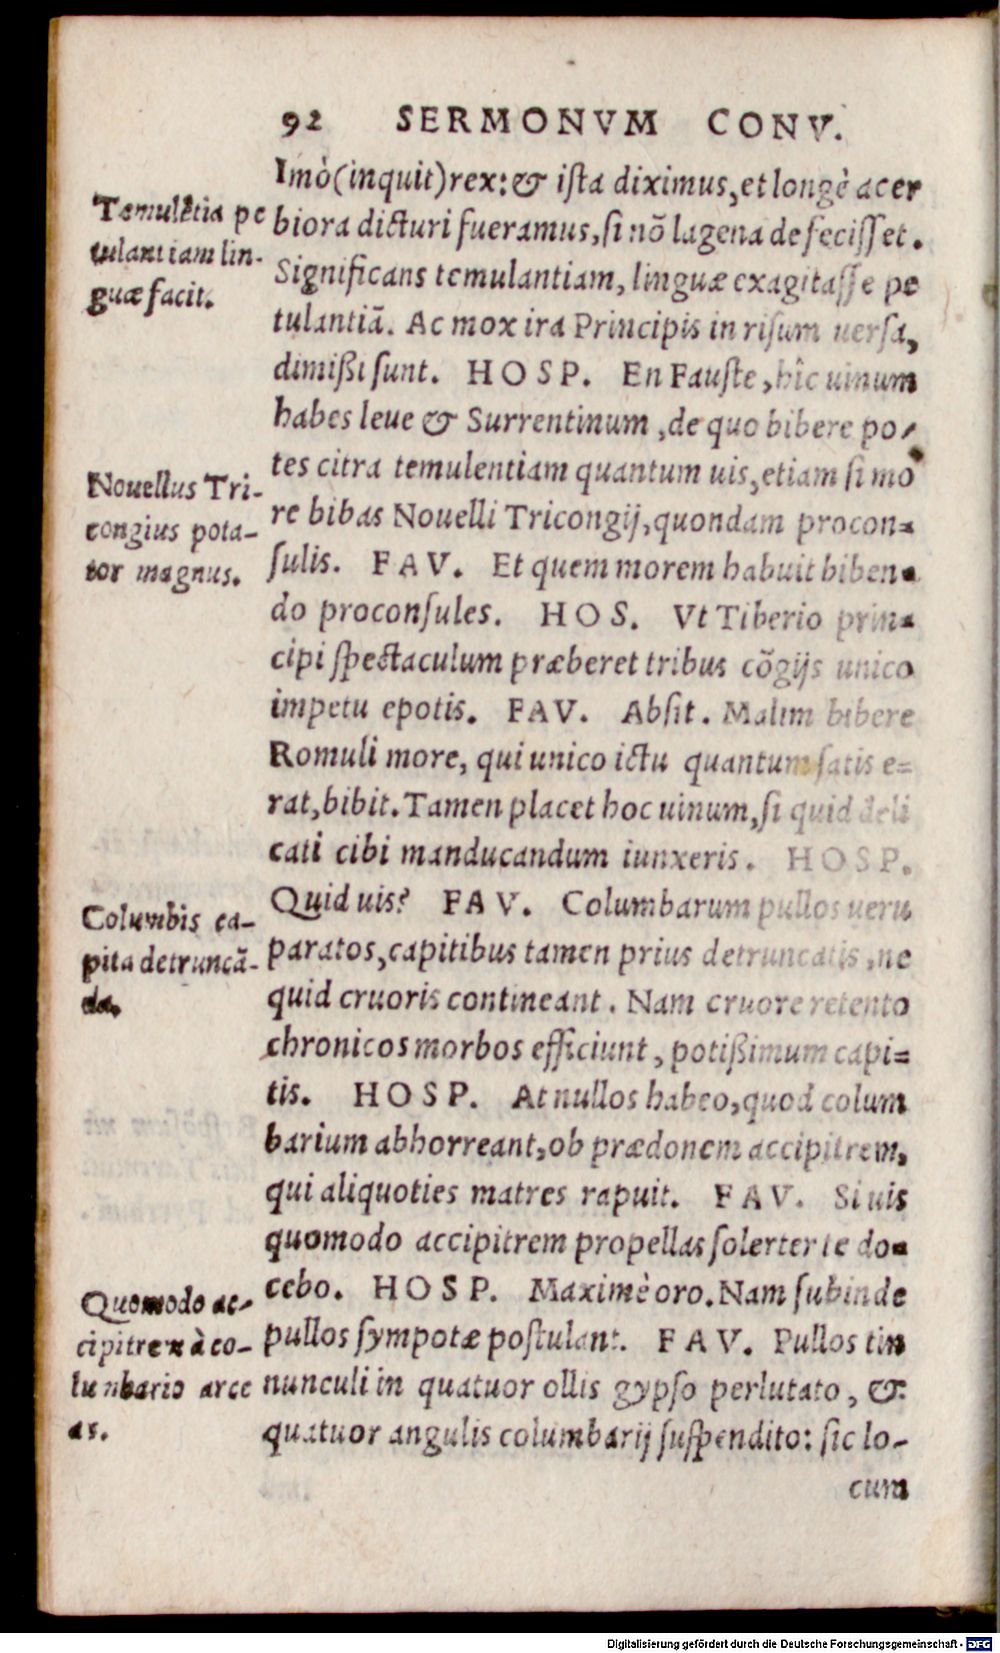 92 SERMONVM CONV.
Imò(inquit)rex:& ista diximus,et longè acer
biora dicturi fueramus,si nõ lagena defecisset.
Significans temulantiam, linguæ exagitasse pe
tulantiã. Ac mox ira Principis in risum uersa,
dimißi sunt. HOSP. En Fauste,hîc uinum
habes leue & Surrentinum,de quo bibere po-
tes citra temulentiam quantum uis,etiam si mo
re bibas Nouelli Tricongij,quondam procon=
sulis. FAV. Et quem morem habuit biben=
do proconsules. HOS. Vt Tiberio prin=
cipi spectaculum præberet tribus cõgijs unico
impetu epotis. FAV. Absit. Malim bibere
Romuli more, qui unico ictu quantum satis e=
rat,bibit. Tamen placet hoc uinum,si quid deli
cati cibi manducandum iunxeris. HOSP.
Quid uis? FAV. Columbarum pullos ueru
paratos,capitibus tamen prius detruncatis,ne
quid cruoris contineant. Nam cruore retento
chronicos morbos efficiunt, potißimum capi=
tis. HOSP. At nullos habeo,quod colum
barium abhorreant,ob prædonem accipitrem,
qui aliquoties matres rapuit. FAV. Si uis
quomodo accipitrem propellas solerter te do=
cebo. HOSP. Maximè oro. Nam subinde
pullos sympotæ postulant. FAV. Pullos tin
nunculi in quatuor ollis gypso perlutato, &
quatuor angulis columbarij suspendito: sic lo-
cum
Temulẽtia pe
tulantiam lin-
guæ facit.
Nouellus Tri-
congius pota-
tor magnus.
Columbis ca-
pita detruncã-
da.
Quomodo ac-
cipitrem à co-
lumbario arce
as.
Digitalisierung gefördert durch die Deutsche Forschungsgemeinschaft - DFG